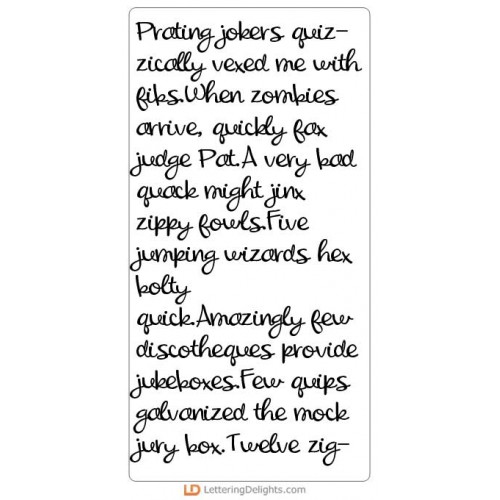 Prating jokers quiz-
zically vexed me with
fibs.When zombies
arrive, quickly fax
judge Pat.A very bad
quack might jinx
zippy fowls.Five
jumping wizards hex
bolty
quick.Amazingly few
discotheques provide
jukeboxes.Few quips
galvanized the mock
jury box.Twelve zig-
LD LetteringDelights.com